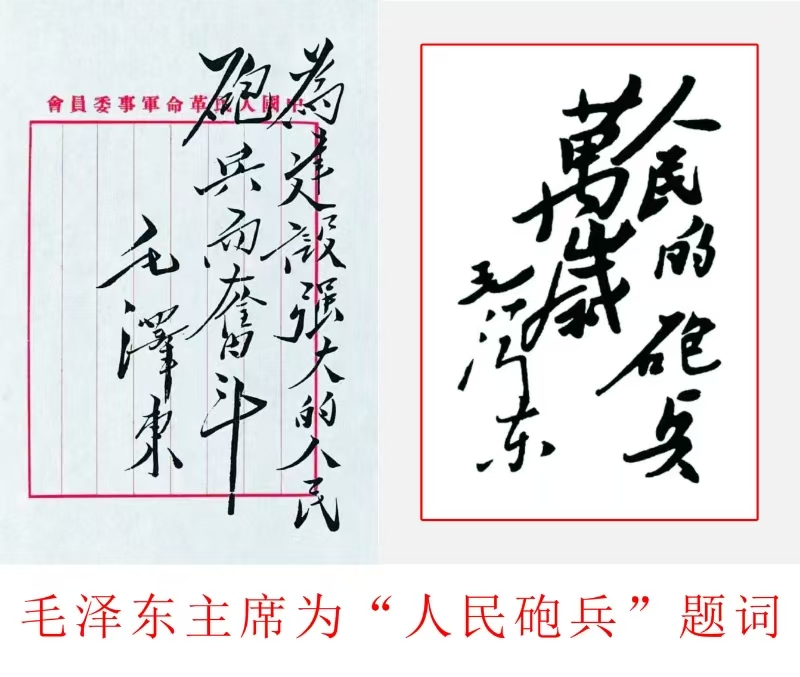 中國人民革命軍事委員會
為建設强大的人民
砲兵而奮斗
毛澤東
人民的砲兵
萬歲
毛泽东
毛泽东主席为“人民砲兵”题词